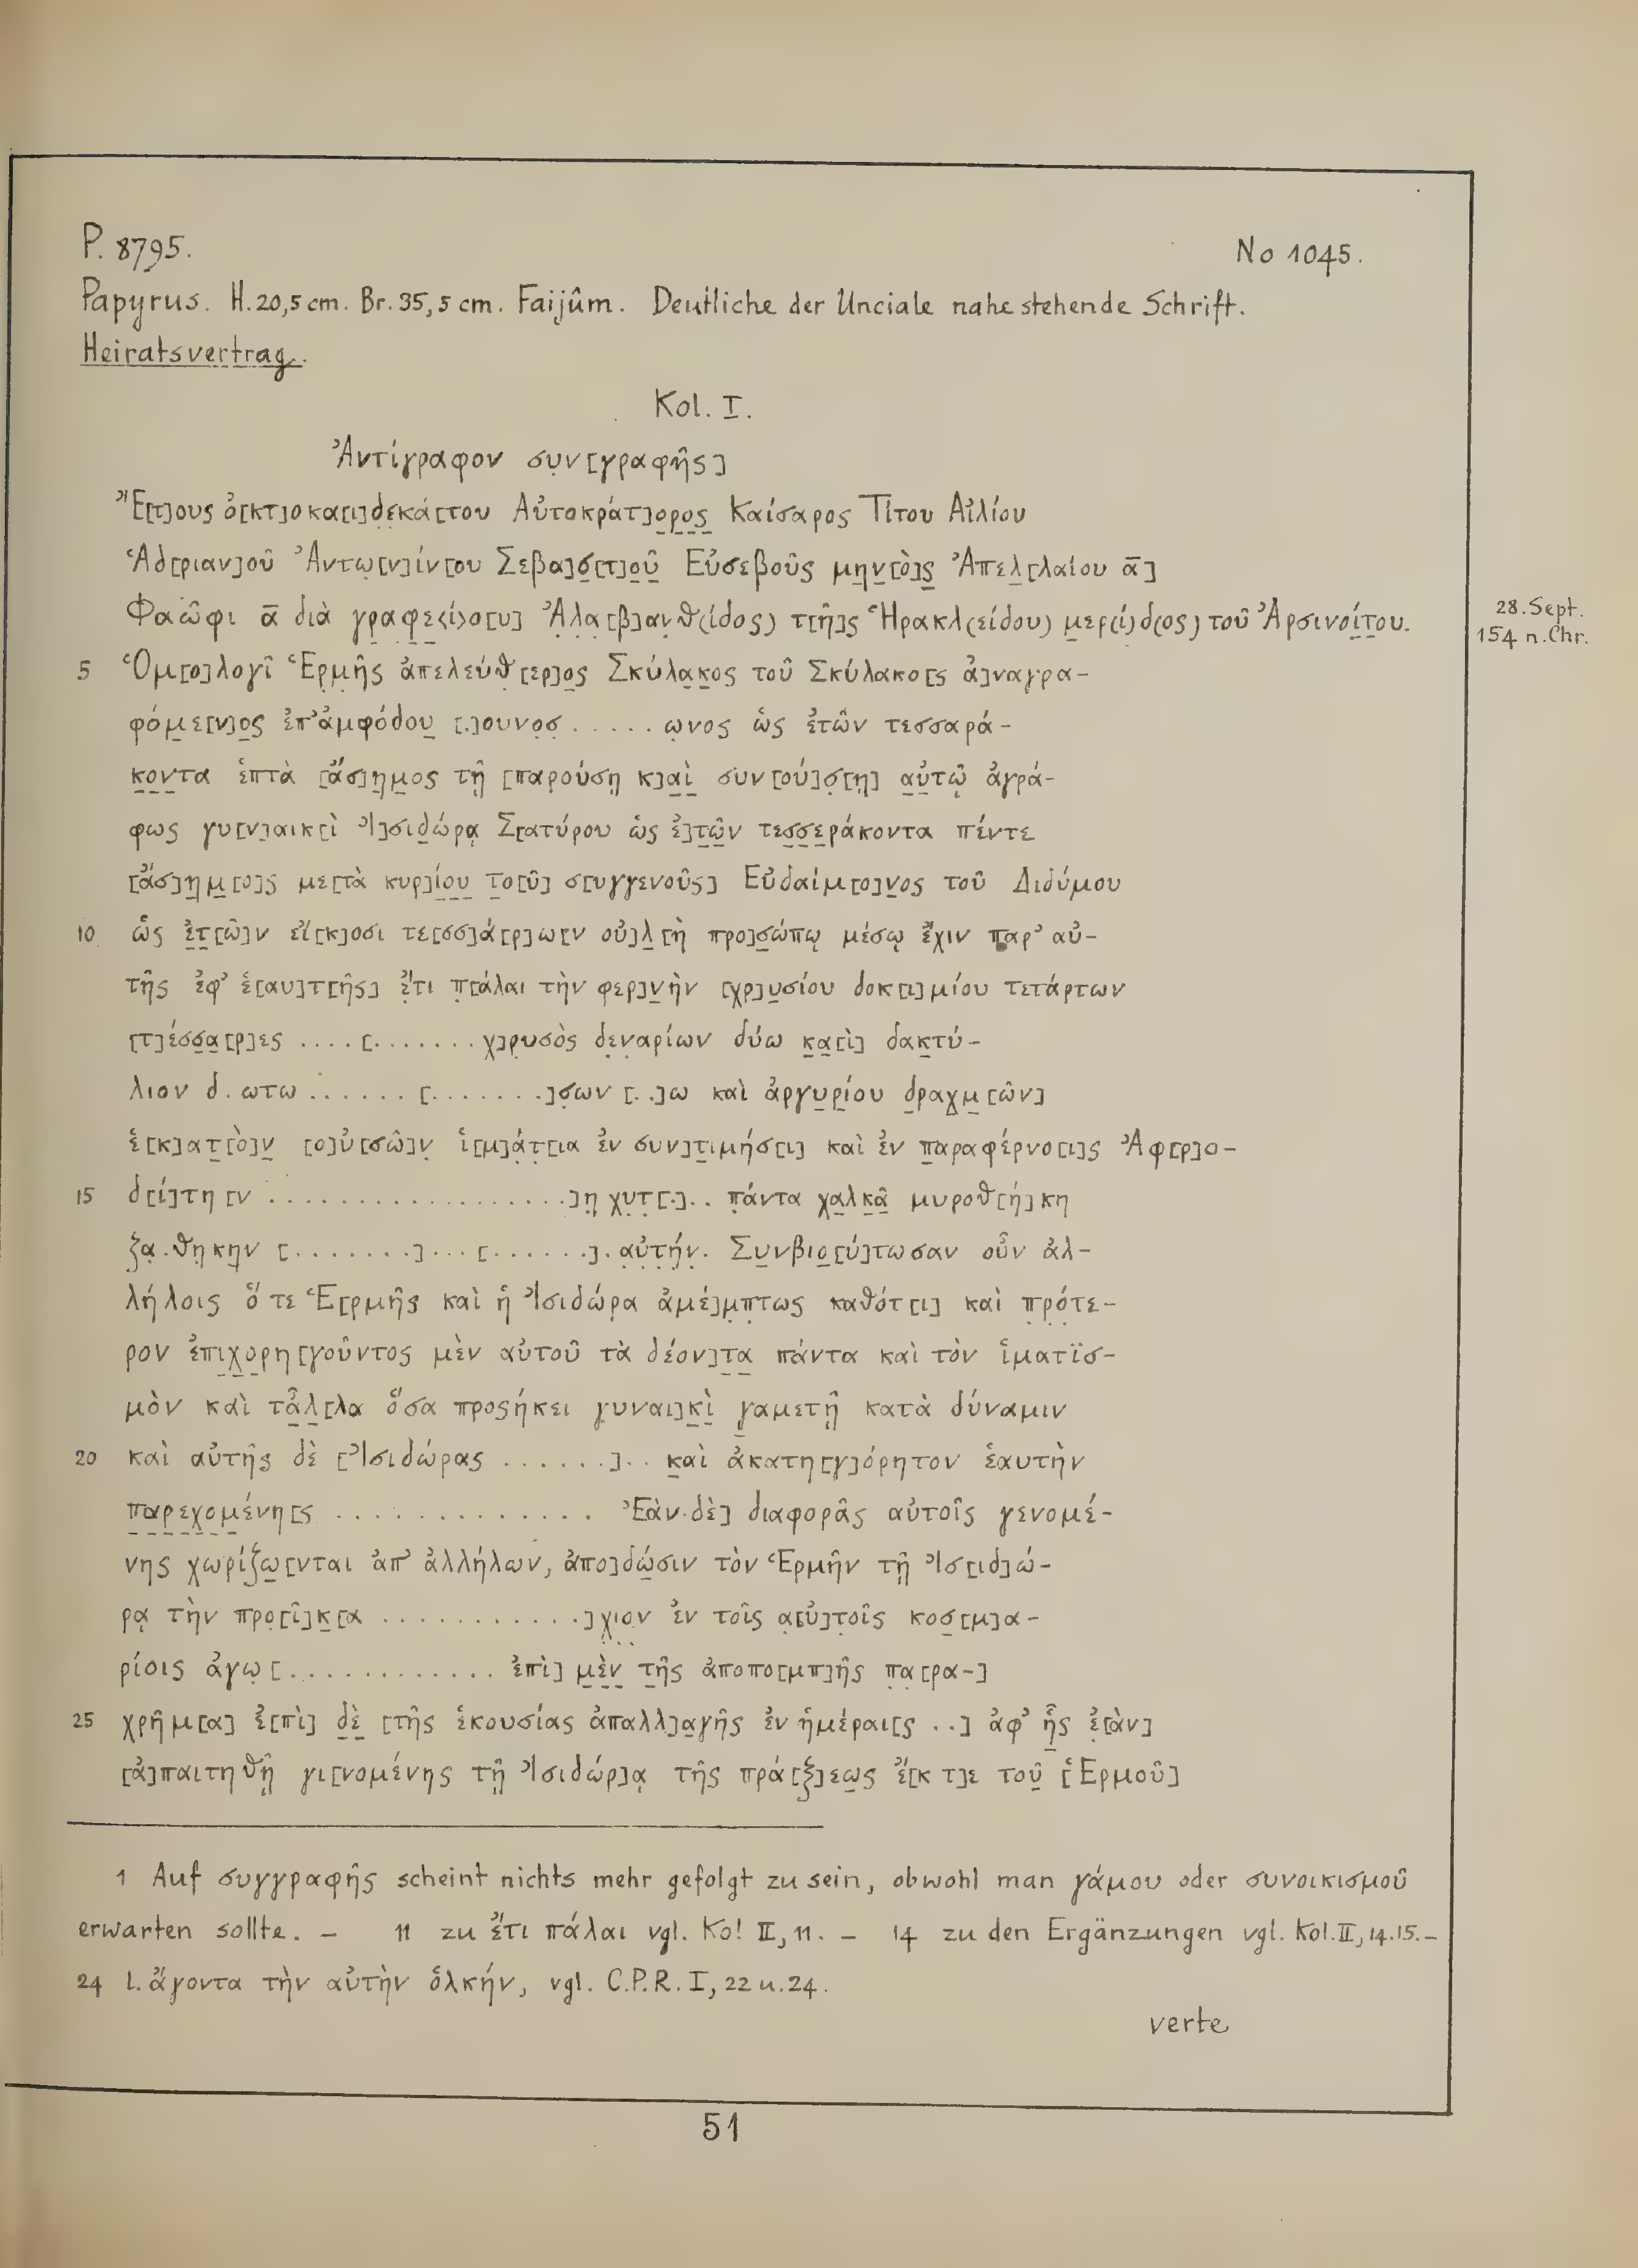 P. 8795.
No 1045.
Papyrus. H. 20,5 cm. Br. 35,5 cm. Faijûm. Deutliche der Unciale nahe stehende Schrift.
Heiratsvertrag.
Kol. I.
Ἀντίγραφον συν[γραφῆς]
Ἔ[τ]ους ὀ[κτ]οκα[ι]δεκά[του Αὐτοκράτ]ο̣ρ̣ο̣ς̣ Καίσαρος Τίτου Αἰλίου
Ἁδ[ριαν]οῦ Ἀντω̣[ν]ίν[ου Σεβα]σ̣[τ]ο̣ῦ̣ Εὐσεβοῦς μη̣ν̣[ὸ]ς̣ Ἀπελ̣[λαίου α̅]
Φαῶφι α̅ διὰ γρ̣α̣φ̣ε̣<ί>ο[υ] Ἀ̣λα[β]αν̣θ(ίδος) τ[ῆ]ς Ἡρακλ(είδου) μ̣ερ(ί)δ(ος) τοῦ Ἀρσινοί̣τ̣ου.
28. Sept.
154 n. Chr.
5 Ὁμ[ο]λογῖ Ἑρ̣μῆς ἀπελεύθ̣[ερ]ο̣ς Σκύλα̣κ̣ος τοῦ Σκύλακο[ς ἀ]ναγρα-
φόμ̣ε[ν]ο̣ς ἐπ' ἀμφόδου̣ [.]ουνο̣σ̣ ..... ω̣νος ὡς ἐτῶν τεσσαρά-
κ̣ο̣ν̣τα ἑπτὰ [ἄσ]η̣μ̣ος τῇ [παρούσῃ κ]α̣ὶ̣ συν[ού]σ̣[ῃ] α̣ὐ̣τῷ ἀγρά-
φως γυ[ν]αικ[ὶ Ἰ]σιδ̣ώρᾳ Σ[ατύρου ὡς ἐ]τ̣ῶ̣ν τεσ̣σ̣ε̣ράκοντα πέντε
[ἄσ]η̣μ̣[ο]ς με[τὰ κυρ]ί̣ο̣υ̣ τ̣ο[ῦ] σ[υγγενοῦς] Εὐδαίμ[ο]ν̣ος τοῦ Διδύμου
10 ὡς ἐ̣τ̣[ῶ]ν εἴ[κ]οσι τε[σσ]ά[ρ]ω[ν οὐ]λ̣[ὴ προ]σ̣ώπῳ μέσῳ ἔχιν παρ' αὐ-
τῆς ἐφ' ἑ[αυ]τ[ῆς] ἔ̣τι π̣[άλαι τὴν φερ]ν̣ὴν [χρ]υ̣σίου δοκ[ι]μίου τετάρτων
[τ]έσ̣σ̣α̣[ρ]ες ....[.......χ]ρ̣υσὸς δεν̣αρίων δύω κ̣α̣[ὶ] δακ̣τύ-
λιον δ.ωτω ......[.......]σ̣ων [..]ω καὶ ἀργυ̣ρ̣ίου δ̣ραχμ̣[ῶν]
ἑ[κ]ατ̣[ὸ]ν̣ [ο]ὐ[σῶ]ν̣ ἱ[μ]ά̣τ̣[ια ἐν συν]τ̣ιμήσ[ι] καὶ ἐν π̣αραφέρνο[ι]ς Ἀφ[ρ]ο-
15 δ[ί]τη [ν ..................]η̣ χυ̣τ̣[.].. π̣άντα χα̣λκ̣ᾶ̣ μυροθ[ή]κη
ζα̣.θη̣κη̣ν [.......]...[......].α̣ὐ̣τ̣ή̣ν̣. Συ̣νβιο̣[ύ]τωσαν οὖν ἀλ-
λήλοις ὅ τε Ἑ[ρμῆς καὶ ἡ Ἰσιδώρα ἀμέ]μ̣π̣τως καθότ[ι] καὶ πρ̣ό̣τε-
ρον ἐπιχ̣ο̣ρ̣η[γοῦντος μὲν αὐτοῦ τὰ δέον]τ̣α̣ πάντα καὶ τὸν ἱματϊσ-
μὸν καὶ τἆ̣λ̣[λα ὅσα προςήκει γυναι]κ̣ὶ̣ γ̣αμετῇ κατὰ δύναμιν
20 καὶ αὐτῆς δὲ [Ἰσιδώρας ......].. κ̣αὶ ἀκατη[γ]όρητον ἑαυτὴν
π̣α̣ρ̣ε̣χ̣ο̣μ̣ένη[ς ............. Ἐὰν δὲ] διαφορᾶς αὐτοῖς γενομέ-
νης χωρίζω̣[νται ἀπ' ἀλλήλων, ἀπο]δώ̣σιν τὸν Ἑρμῆν τῇ Ἰσ[ιδ]ώ-
ρᾳ τὴν προ̣[ῖ]κ̣[α ............]χ̣ι̣ο̣ν ἐν τοῖς α̣[ὐ]τ̣οῖς κοσ̣[μ]α-
ρίοις ἀγω̣ [............ ἐπὶ] μ̣ὲ̣ν̣ τ̣ῆς ἀποπο[μπ]ῆς πα̣[ρα-]
25 χρῆμ[α] ἐ[πὶ] δ̣ὲ̣ [τῆς ἑκουσίας ἀπαλλ]α̣γῆς ἐν ἡμέραι[ς ..] ἀφ' ἧ̣ς ἐ̣[ὰν]
[ἀ]παιτηθῇ γι[νομένης τῇ Ἰσιδώρ]ᾳ τῆς πρά[ξ]εω̣ς ἔ[κ τ]ε τοῦ̣ [Ἑρμοῦ]
1 Auf συγγραφῆς scheint nichts mehr gefolgt zu sein, obwohl man γάμου oder συνοικισμοῦ
erwarten sollte. – 11 zu ἔτι πάλαι vgl. Kol II, 11. – 14 zu den Ergänzungen vgl. Kol. II, 14.15. –
24 l. ἄγοντα τὴν αὐτὴν ὁλκήν, vgl. C.P.R. I, 22 u. 24.
verte
51